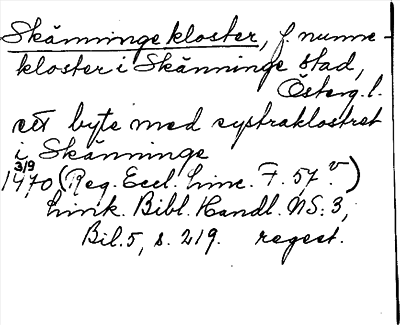 Skänninge kloster, f. nunne-
kloster i Skänninge stad,
Österg. l.
ett byte med systraklostret
i Skänninge
3/9
1470 (Reg. Eccl. Linc. F. 57 v)
Link. Bibl. Handl. NS. 3,
Bil. 5, s. 219. regest.